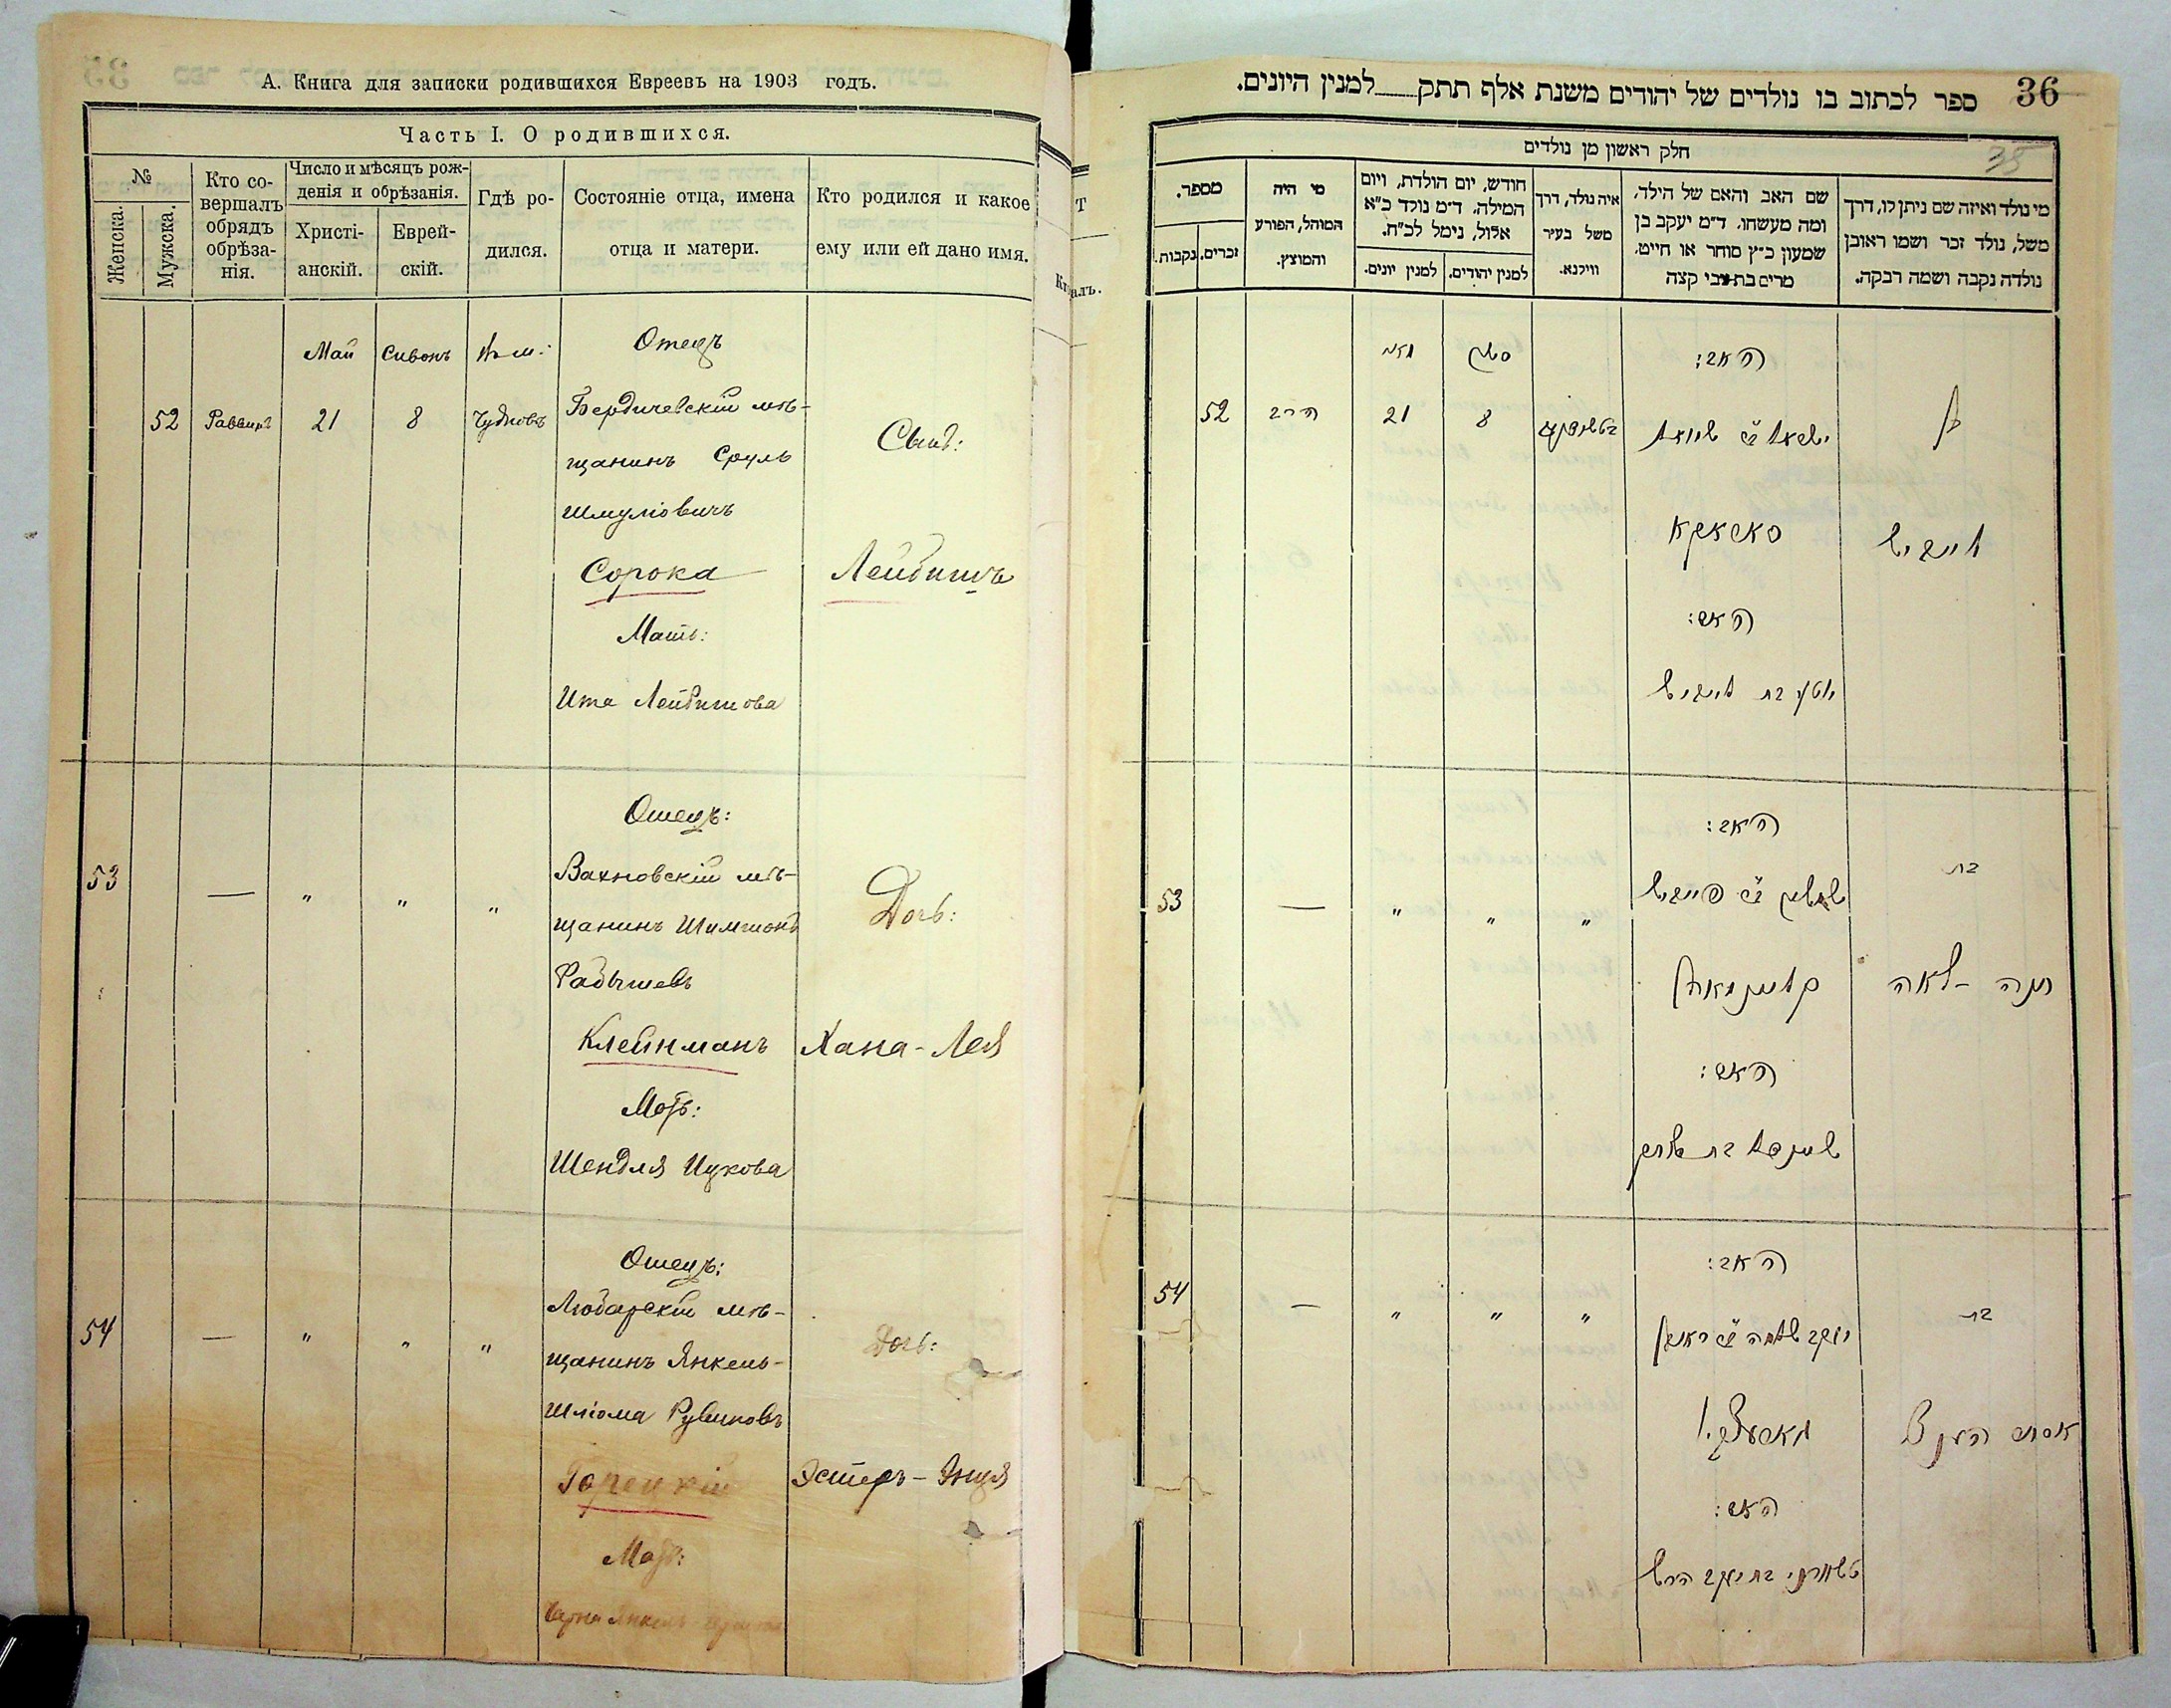 А. Книга для записки родившихся Евреевъ на 1903 годъ.
Часть I. О родившихся.
№
Женска.
Мужска.
Кто со-
вершалъ
обрядъ
обрѣза-
нія.
Число и мѣсяцъ рож-
денія и обрѣзанія.
Христі-
анскій.
Еврей-
скій.
Гдѣ ро-
дился.
Состояніе отца, имена
отца и матери.
Кто родился и какое
ему или ей дано имя.
Май
Сивонъ
Отецъ
52
Раввинъ
21
8
Чудновъ
Бердичевскій мѣ-
щанинъ Сруль
Шмуліовичъ
Сорока
Мать:
Ита Лейбишова
Сынъ:
Лейбишъ
53
—
"
"
"
Отецъ:
Вахновскій мѣ-
щанинъ Шимшонъ
Клейнманъ
Мать:
Шендля Ицкова
Дочь:
Хана-Лея
54
—
"
"
"
Отецъ:
Любарскій мѣ-
щанинъ Янкель-
Шліома Рувиновъ
Горецкій
Мать:
Дочь:
Эстеръ-Энця
36
38
ספר לכתוב בו נולדים של יהודים משנת אלף תתק למנין היונים.
חלק ראשון מן נולדים
מספר.
נקבות.
זכרים.
מי היה
המוהל, הפורע
והמוצץ.
חודש, יום הולדת, ויום
המילה. ד"מ נולד כ"א
אלול, נימל לכ"ח.
למנין יונים.
למנין יהודים.
איה נולד, דרך
משל בעיר
ווילנא.
שם האב והאם של הילד,
ומה מעשהו. ד"מ יעקב בן
שמעון כ"ץ סוחר או חייט.
מרים בת צבי קצה
מי נולד ואיזה שם ניתן לו, דרך
משל, נולד זכר ושמו ראובן
נולדה נקבה ושמה רבקה.
מאי
סיון
האב:
52
הרב
21
8
בן
סאראקא
לייביש
האם:
יטע בת לייביש
האב:
53
—
"
"
"
שמשון ב"ר פייביש
בת
קליינמאן
חנה - לאה
האם:
שיינדל בת יצחק
האב:
54
—
"
"
"
יעקב שלמה ב"ר ראובן
בת
אסתר הענצ
האם:
טשארני בת יעקב הירש